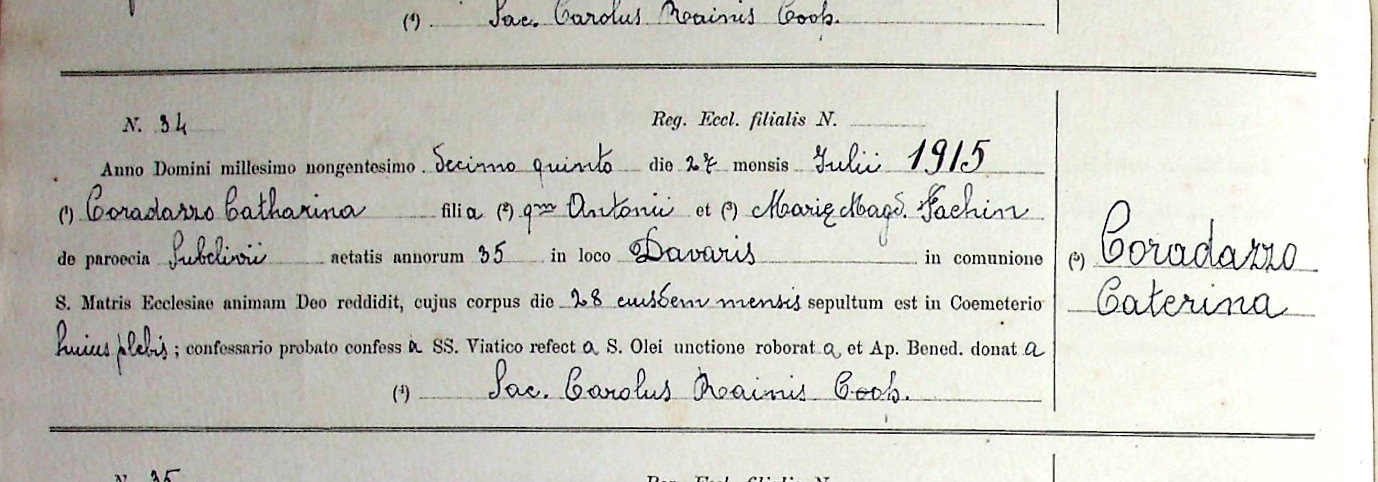 (⁴) Sac. Carolus Rainis Coop.
N. 34 Reg. Eccl. filialis N.
Anno Domini millesimo nongentesimo decimo quinto die 27 mensis Julii 1915
(¹) Coradazzo Catharina filia (²) qm Antonii et (³) Marię Magd. Fachin
de paroecia Subclivii aetatis annorum 35 in loco Davaris in comunione
S. Matris Ecclesiae animam Deo reddidit, cujus corpus die 28 eiusdem mensis sepultum est in Coemeterio
huius plebis; confessario probato confessa SS. Viatico refecta S. Olei unctione roborata, et Ap. Bened. donata
(⁴) Sac. Carolus Rainis Coop.
(⁵) Coradazzo
Caterina
N. 35 Reg. Eccl. filialis N.